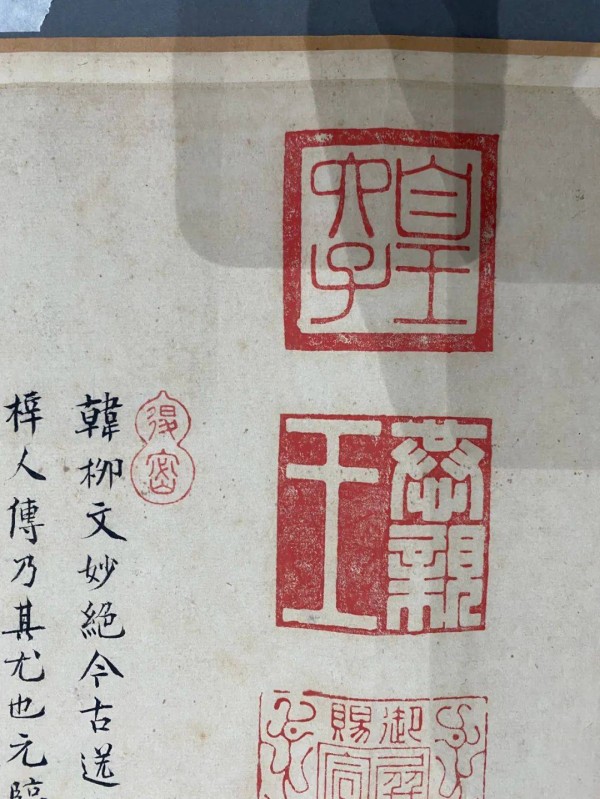 皇六子
恭親王
御賜
得密
韓柳文妙絕今古送
梓人傳乃其尤也元